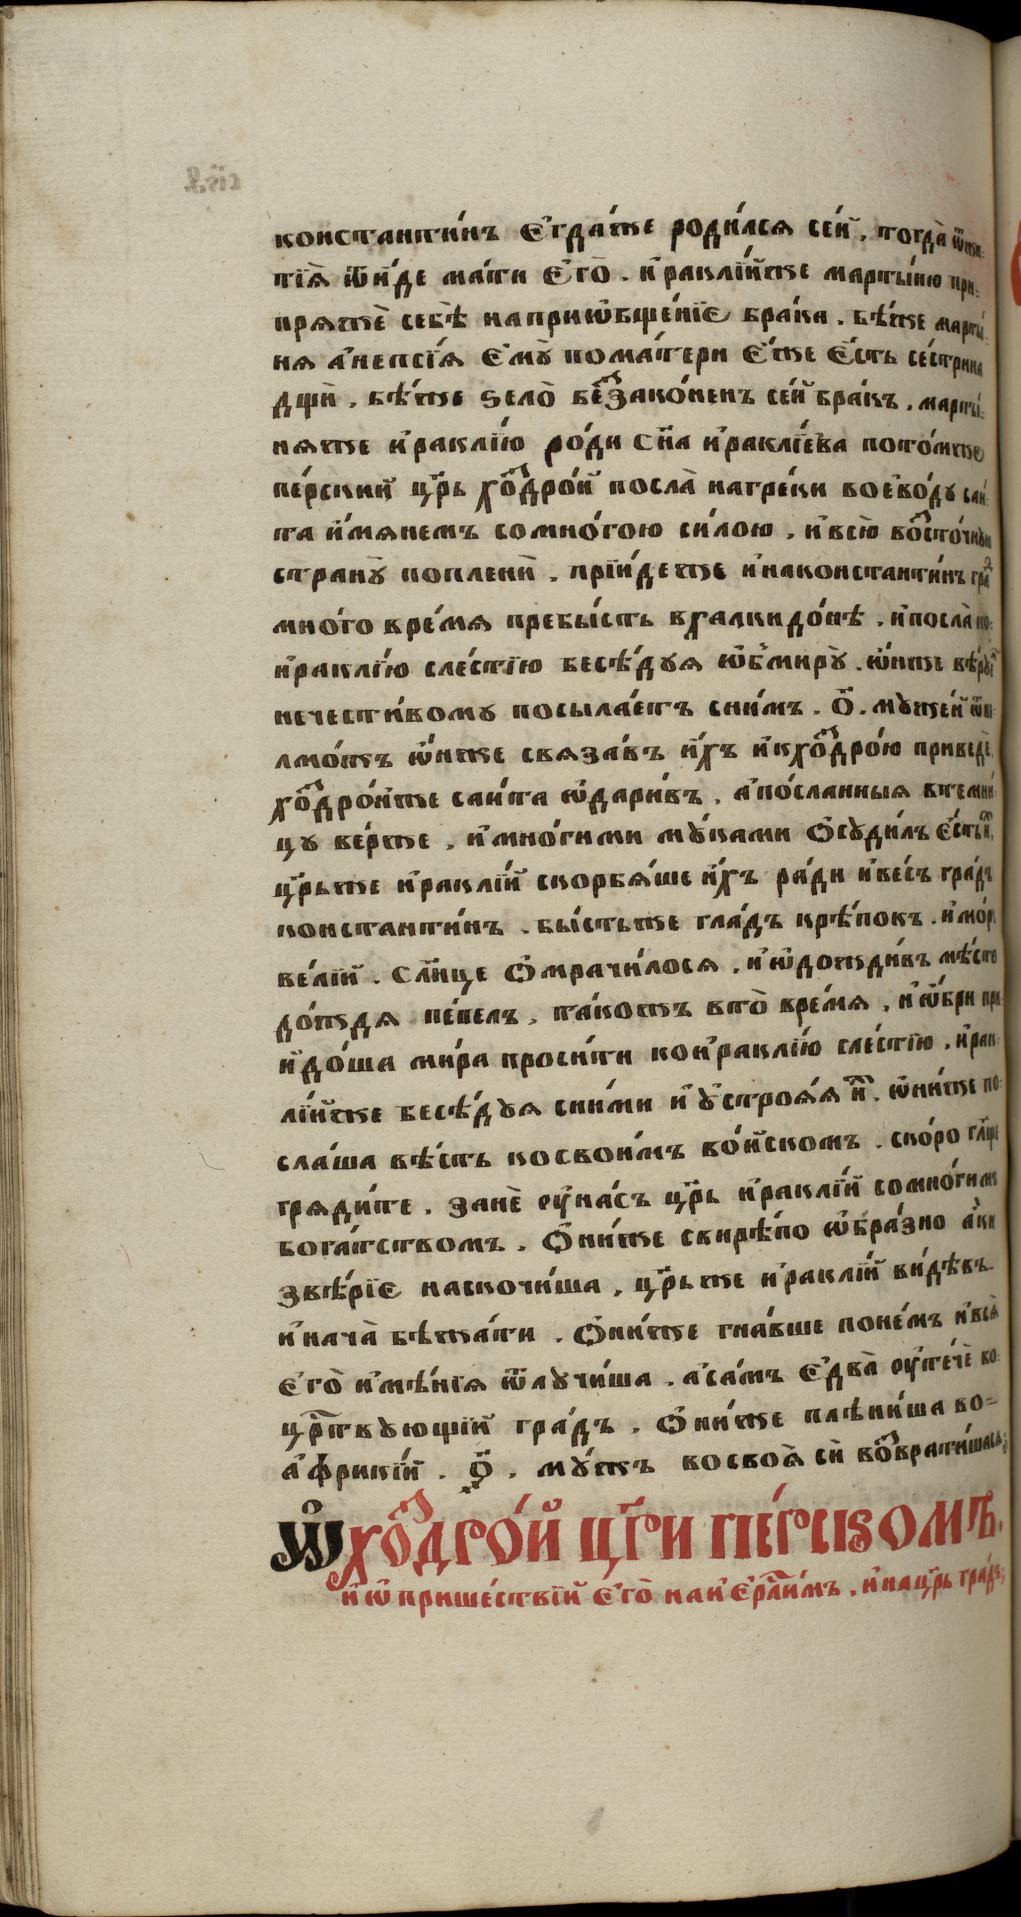 константи́нъ є҆гда́же роди́лся се́й, тогда̀ ѿжи-
тїѧ̀ ѿи́де ма́ти є҆гѡ̀. и҆ракли́йже марты́ню при-
пряжѐ себѣ̀ наприѡбще́нїє бра́ка. бѣ́же марты́-
ня а҆непсїѧ є҆мꙋ̀ пома́тери є҆́же є҆́сть се́стрина
дщѝ. бѣ́же ѕело̀ беззако́ненъ се́й бра́къ. марты́-
няже и҆ракли́ю ро́ди сн҃а и҆ракли́ева пото́мже
пе́рский цр҃ь хоздро́й посла̀ нагре́ки воево́дꙋ саи́-
та и҆́мянемъ сомно́гою си́лою, и҆всю̀ восто́чнꙋю
странꙋ̀ поплени̑. прїи́деже и҆наконстанти́нъ гра́д
мно́го вре́мѧ пребы́сть вхалкидо́нѣ. и҆посла̀ ко-
и҆ракли́ю сле́стїю бесѣ́дꙋѧ ѡ҆бмирꙋ̀. ѡ҆́нже
нечести́вомꙋ посыла́етъ сни́мъ. о҃. мꙋже́й ѿве-
лмо́жъ ѡ҆́нже связа́въ и҆́хъ и҆кхоздро́ю приведѐ.
хоздро́йже саи́та ѡ҆дари́въ, а҆по́сланныя втемни́-
цꙋ ве́рже, и҆мно́гими мꙋ́ками ѻ҆сꙋди́лъ є҆́сть и҆́х,
цр҃ьже и҆ракли́й скорбя́ше и҆́хъ ра́ди и҆ве́сь гра́дъ
константи́нъ. бы́стьже гла́дъ крѣ́покъ. и҆мо́ръ
ве́лїй. сл҃нце ѻ҆мрачи́лося, и҆ѡ҆дожди́въ мѣ́сто
до́ждѧ пе́пелъ, та́кожъ вто̀ вре́мѧ, и҆ѡ҆́бри при-
и҆до́ша ми́ра проси́ти кои҆ракли́ю сле́стїю. и҆рак-
ли́йже бесѣ́дꙋѧ сни́ми и҆ ꙋ҆строѧ́ѧ и҆̀х. ѡ҆ни́же по-
сла́ша вѣ́сть косвои́мъ во́йскомъ. ско́ро гл҃ще
гряди́те. занѐ ᲂу҆на́съ цр҃ь и҆ракли́й сомно́гимъ
бога́тствомъ. ѻ҆ни́же свирѣ́по ѡ҆бра́зно а҆́ки
звѣ́рїє наскочи́ша, цр҃ьже и҆ракли́й ви́дѣвъ
и҆нача̀ бѣжа́ти. ѻ҆ни́же гна́вше поне́мъ и҆всѧ̀
є҆гѡ̀ и҆мѣ́нїѧ ѿлꙋчи́ша. а҆са́мъ є҆два̀ ᲂу҆течѐ во-
црⷭ҇твꙋющїй гра́дъ. ѻ҆ни́же плѣни́ша во-
а҆фрики́й. о҃. мꙋ́жъ косвоѧ̀ сѝ возврати́шася;
Ѡ҆ хоздро́й цр҃и пе́рскомъ.
и҆ ѡ҆ прише́ствїи є҆гѡ̀ на и҆єрл҃и́мъ. и҆нацр҃ь гра́дъ;